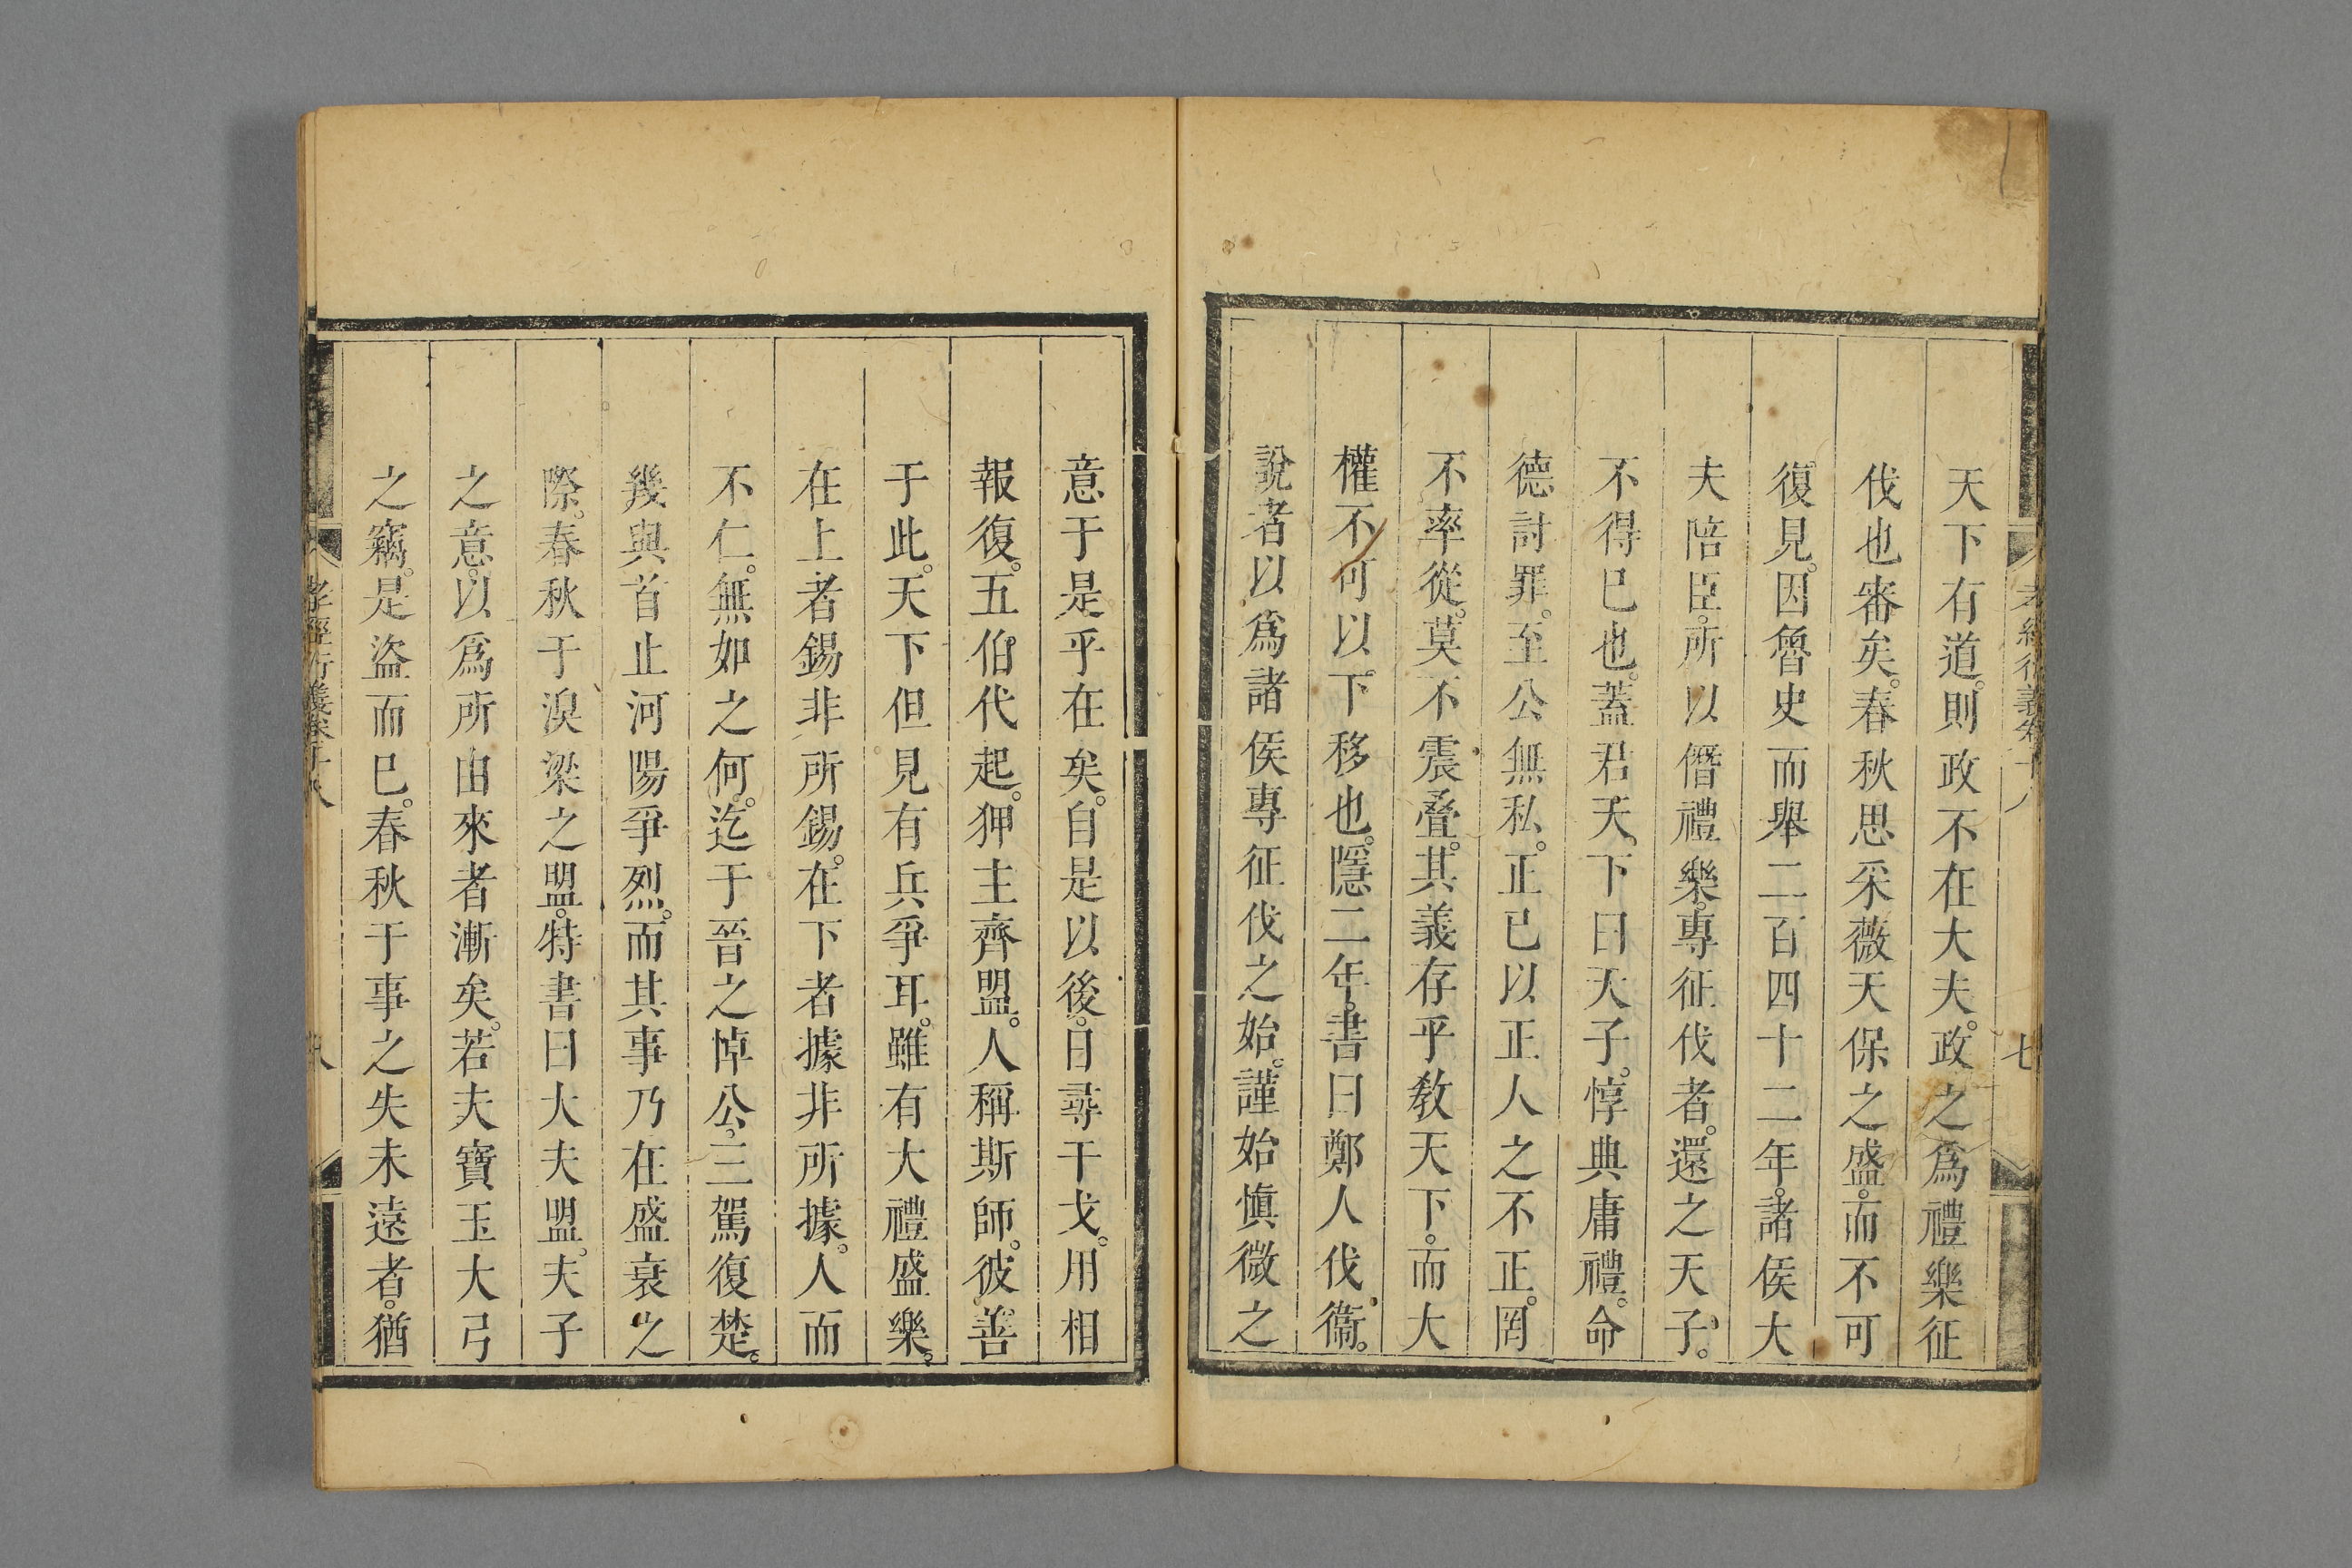 天下有道。則政不在大夫。政之爲禮樂征
伐也審矣。春秋思采薇天保之盛。而不可
復見。因魯史而舉二百四十二年。諸侯大
夫陪臣。所以僭禮樂。專征伐者。還之天子。
不得已也。蓋君天下曰天子。惇典庸禮。命
德討罪。至公無私。正已以正人之不正。罔
不率從。莫不震疊。其義存乎敎天下。而大
權不可以下移也。隱二年。書曰鄭人伐衞。
說者以爲諸侯專征伐之始。謹始愼微之
意于是乎在矣。自是以後。日尋干戈。用相
報復。五伯代起。狎主齊盟。人稱斯師。彼善
于此。天下但見有兵爭耳。雖有大禮盛樂。
在上者錫非所錫。在下者據非所據。人而
不仁。無如之何。迄于晉之悼公。三駕復楚。
幾與首止河陽爭烈。而其事乃在盛衰之
際。春秋于湨梁之盟。特書曰大夫盟。夫子
之意。以爲所由來者漸矣。若夫寶玉大弓
之竊。是盜而已。春秋于事之失未遠者。猶
孝經衍義卷十八
七
孝經衍義卷十八
八